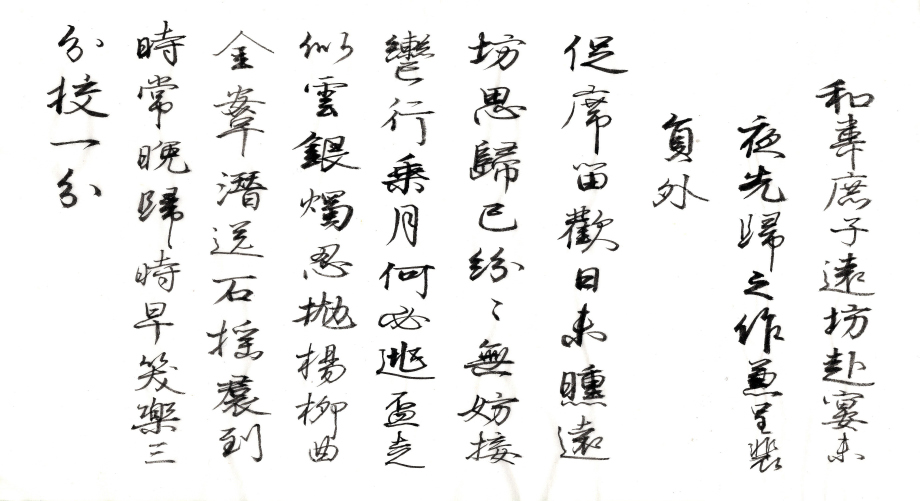 和韋庶子遠坊赴宴未
夜先歸之作兼呈裴
員外
促席留歡日未曛遠
坊思歸已紛〻無妨接
轡行乘月何必逃盃走
似雲銀燭忍拋楊柳曲
金鞍潛送石榴裙到
時常晚歸時早笑樂三
分校一分